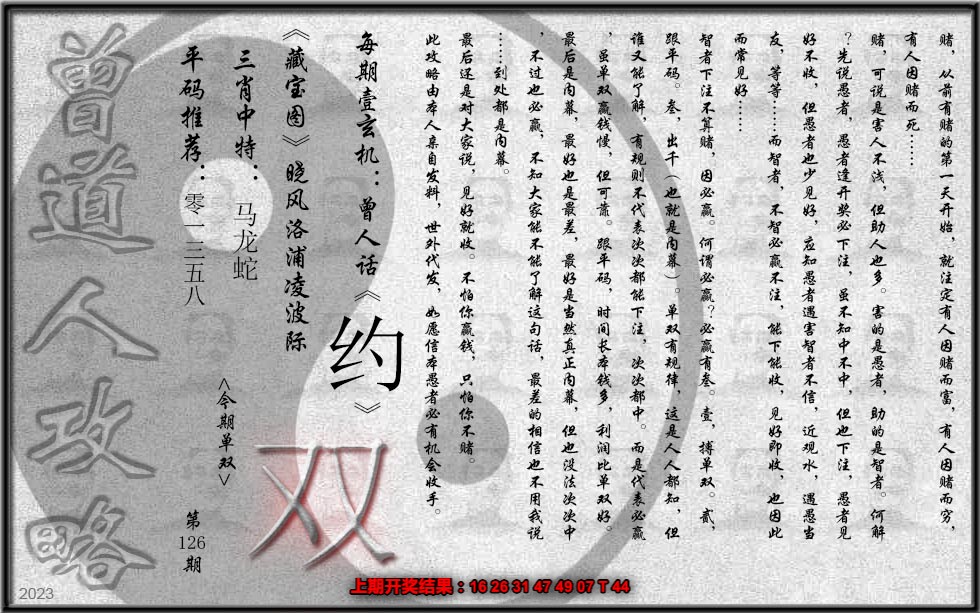 赌，从前有赌的第一天开始，就注定有人因赌而富，有人因赌而穷，
有人因赌而死……
赌，可说是害人不浅，但助人也多。害的是愚者，助的是智者。何解
？先说愚者，愚者逢开奖必下注，虽不知中不中，但也下注，愚者见
好不收，但愚者也少见好，应知愚者遇害智者不信，近观水，遇愚当
友，等等……而智者，不智必赢不注，能下能收，见好即收，也因此
而常见好……
智者下注不算赌，因必赢。何谓必赢？必赢有叁。壹，搏单双。贰，
跟平码。叁，出千（也就是内幕）。单双有规律，这是人人都知，但
谁又能了解，有规则不代表次次都能下注，次次都中。而是代表必赢
，虽单双赢钱慢，但可靠。跟平码，时间长本钱多，利润比单双好。
最后是内幕，最好也是最差，最好是当然真正内幕，但也没法次次中
，不过也必赢，不知大家能不能了解这句话，最差的相信也不用我说
……到处都是内幕。
最后还是对大家说，见好就收。不怕你赢钱，只怕你不赌。
此攻略由本人亲自发料，世外代发，如愿信本愚者必有机会收手。
每期壹玄机：曾人话《约》
《藏宝图》晓风洛浦凌波际
三肖中特：马龙蛇
平码推荐：零一三五八
<今期单双>
双
第126期
曾道人攻略
2023
上期开奖结果：16 26 31 47 49 07 T 44